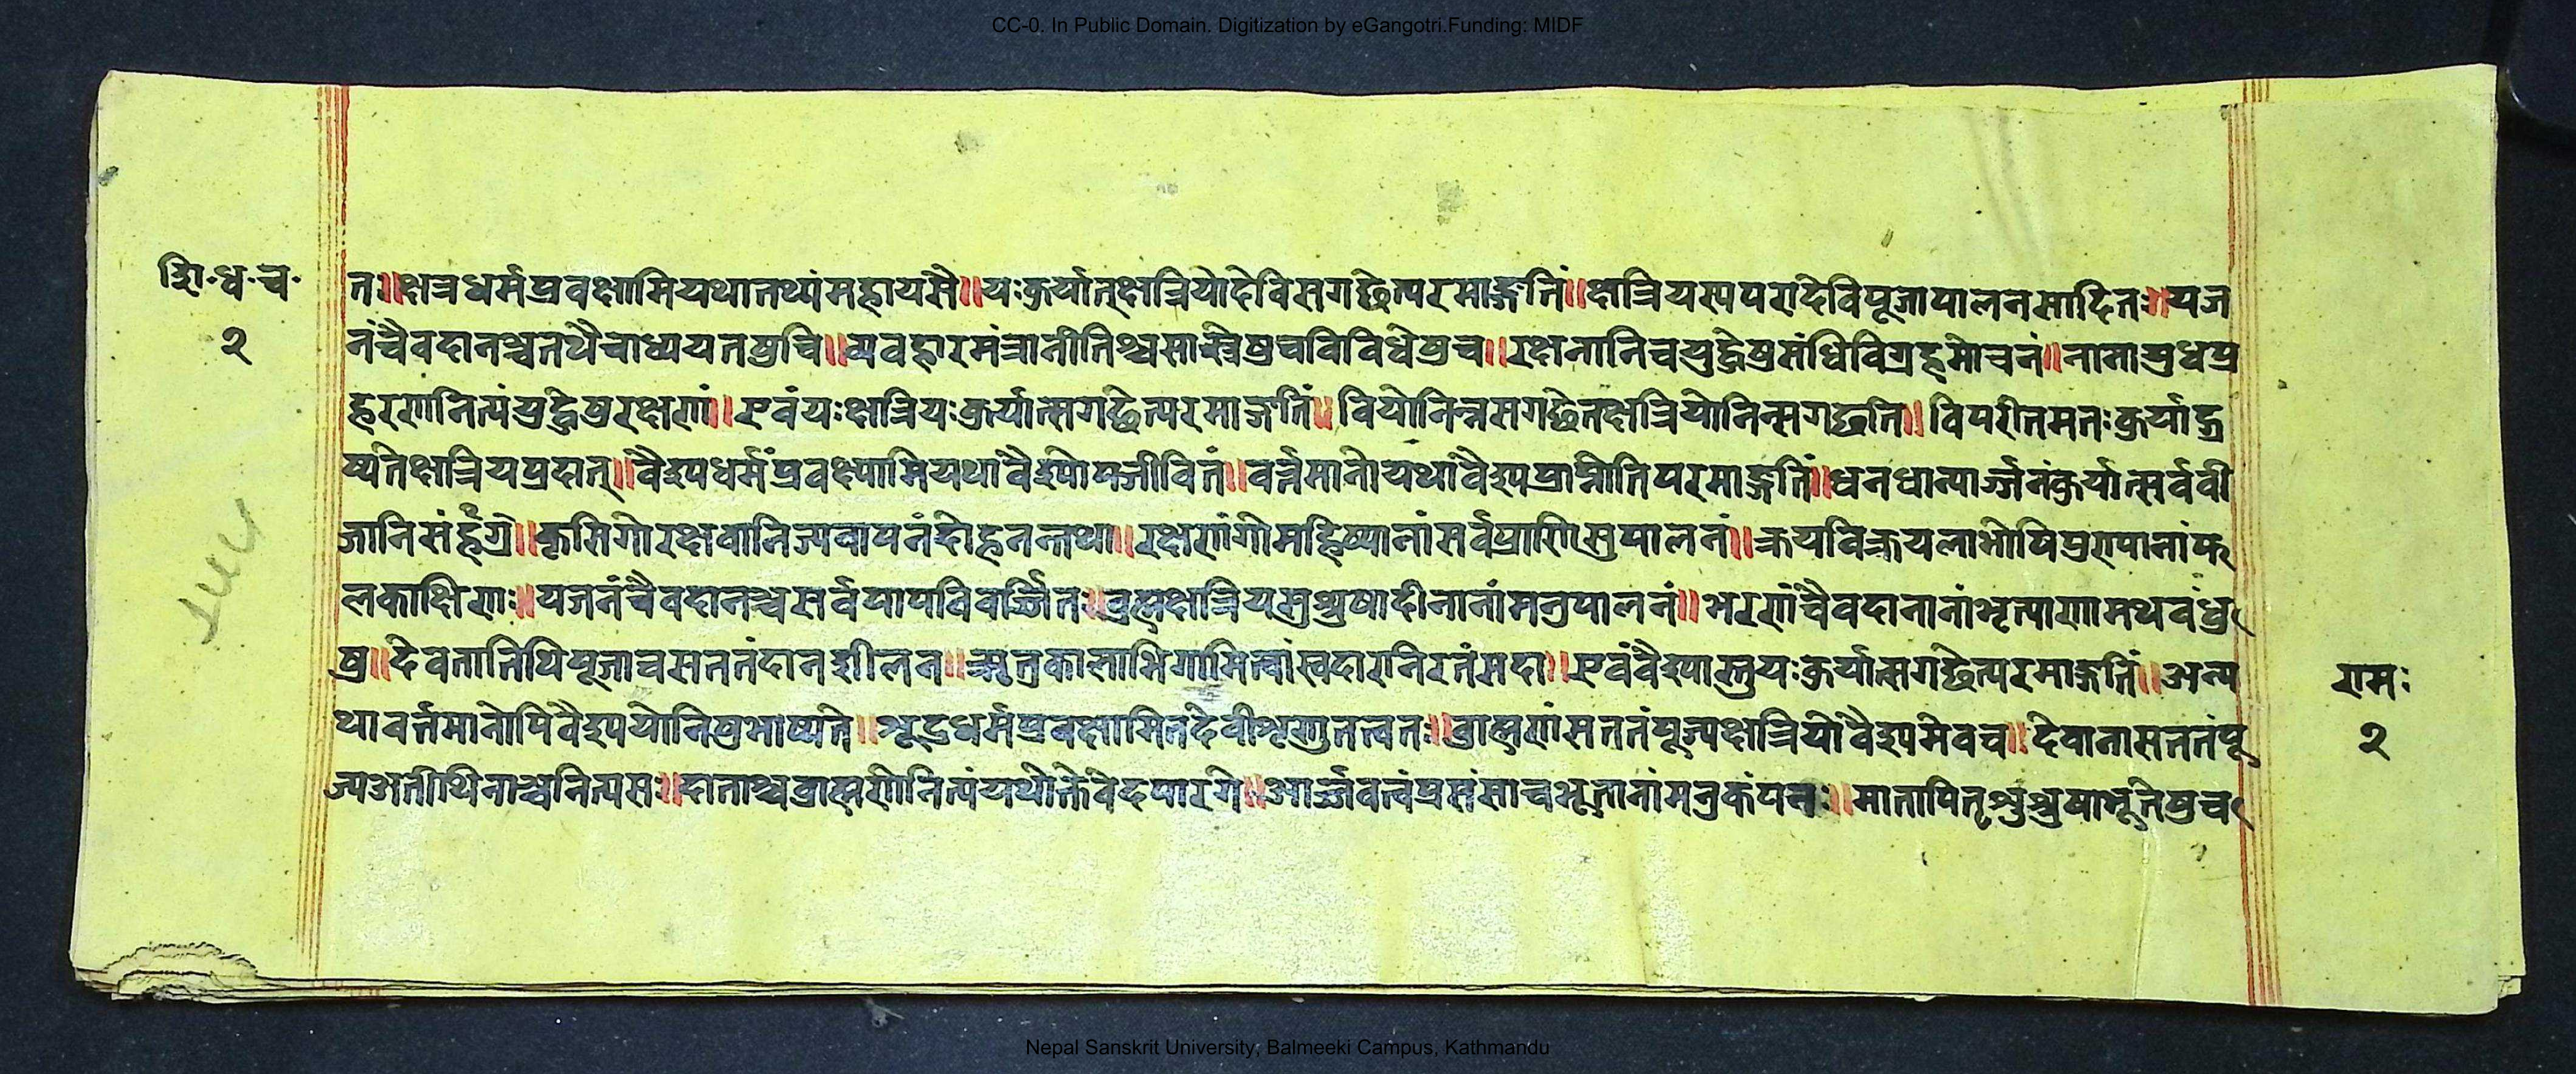 CC-0. In Public Domain. Digitization by eGangotri.Funding: MIDF
शि॰ध॰च॰
२
त॥क्षत्रधर्मप्रवक्षामियथातथ्यंमहायसै॥यःकुर्यात्क्षत्रियोदेविसगछेत्परमाङ्गतिं॥क्षत्रियस्यपरादेविपूजापालनसादित॥यज
नंचैवदानश्चतथैचाध्ययतषुचि॥व्यवहारमंत्रानीतिश्चसास्त्रेषुचविविधेषुच॥रक्षनानिचयुद्धेषुसंधिविग्रहमोचनं॥नानायुधप्र
हरणानित्यंयुद्धेषुरक्षणां॥एवंयःक्षत्रियःकुर्यात्सगछेत्परमाङ्गतिं॥वियोनिन्नसगछेतक्षत्रियोनिन्सगछति॥विपरीतमतःकुर्याद्भ्र
ष्यतेक्षत्रियप्रदात्॥वैश्यधर्मंप्रवक्ष्यामियथावैश्योपजीवितं॥वर्त्तमानोयथांवैश्यप्राप्नोतिपरमाङ्गतिं॥धनधान्यार्ज्जनंकुर्यात्सर्ववी
जानिसंर्हग्रे॥कृसिगोरक्षवानिज्यवापनंदोहनन्तथा॥रक्षणंगोमहिष्यानांसर्वप्राणिसुपालनं॥क्रयविक्रयलाभोपिप्ररापानांफ
लकाक्षिणः॥यजनंचैवदानश्चसर्वपापविवर्ज्जित॥व्रह्मक्षत्रियसुश्रुषादीनानांमनुपालनं॥भरणंचैवदानानांभृत्यारणामथवंधु
षु॥देवतातिथिपूजाचसततंदानशीलन॥ऋतुकालाभिगामित्वांस्वदारानिरतंसदा॥एवंवैश्यास्तुयःकुर्यात्सगछेत्परमाङ्गतिं॥अन्य
थावर्त्तमानोपिवैश्ययोनिषुभाष्यते॥शूद्रधर्मप्रवक्षामितदेवीशृणुतत्वत॥व्राह्मणंसततंपूज्यक्षत्रियोवैश्यमेवच॥देवानासततंपू
ज्यअतीथिनाश्चनित्यस॥दाताश्चव्राह्मणेनित्यंयथोक्तेवेदपारगे॥आर्ज्जवत्वंप्रसंसाचभूतानांमनुकंपन॥मातापितृशुश्रुषाभूतेषुच
रामः
२
Nepal Sanskrit University, Balmeeki Campus, Kathmandu